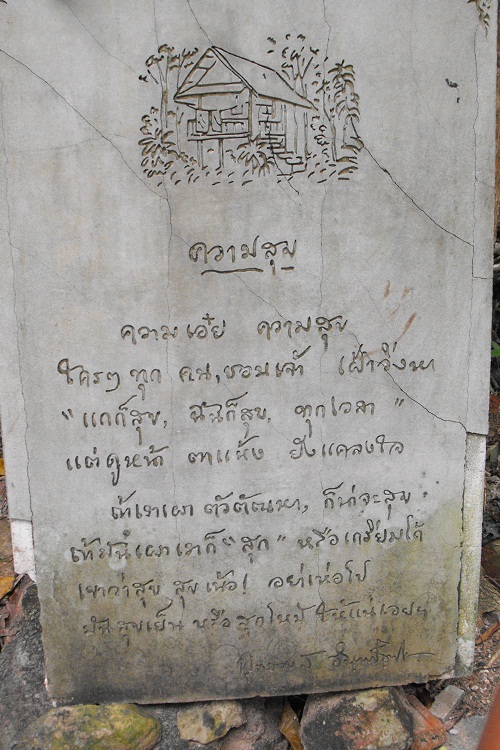 ความสุข
ความเอ๋ย ความสุข
ใครๆ ทุก คน, ชอบเจ้า เฝ้าวิ่งหา
"แกก็สุข, ฉันก็สุข, ทุกเวลา"
แต่ดูหน้า ตาแห้ง ยังแคลงใจ
ถ้าเราเผา ตัวตัณหา, ก็น่าจะสุข
ถ้ามันเผาเราก็ "สุก" หรือเกรียมได้
เขาว่าสุข สุขเน้อ! อย่าเห่อไป
มันสุขเย็น หรือสุกไหม้ ให้แน่เอยฯ